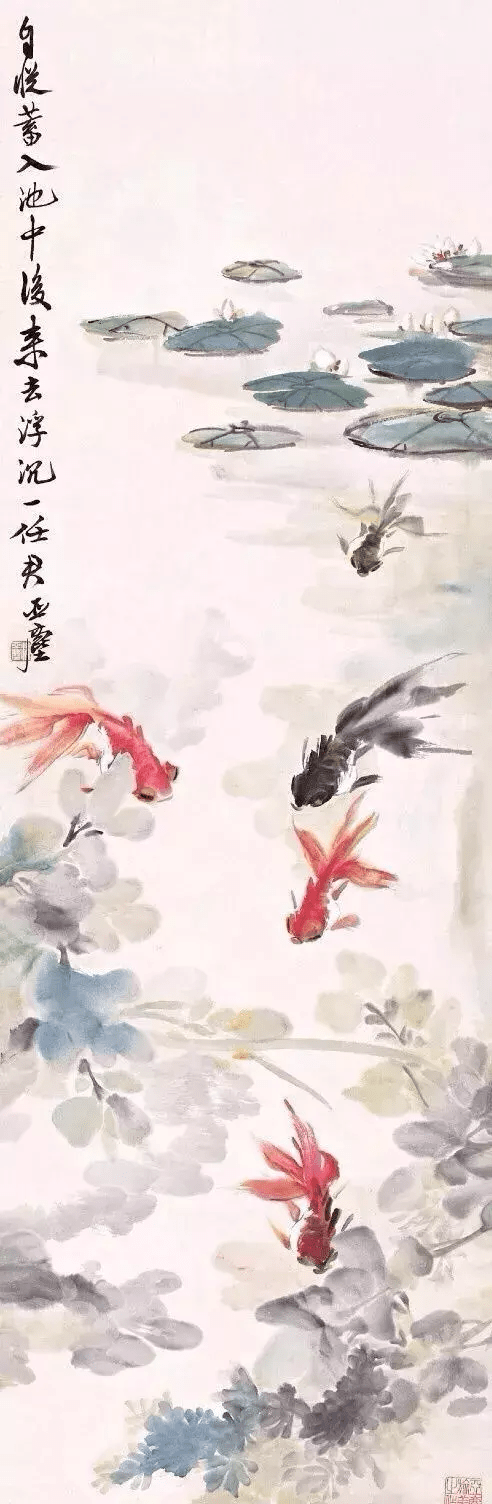 自從蓄入池中後來去浮沉一任君亞塵